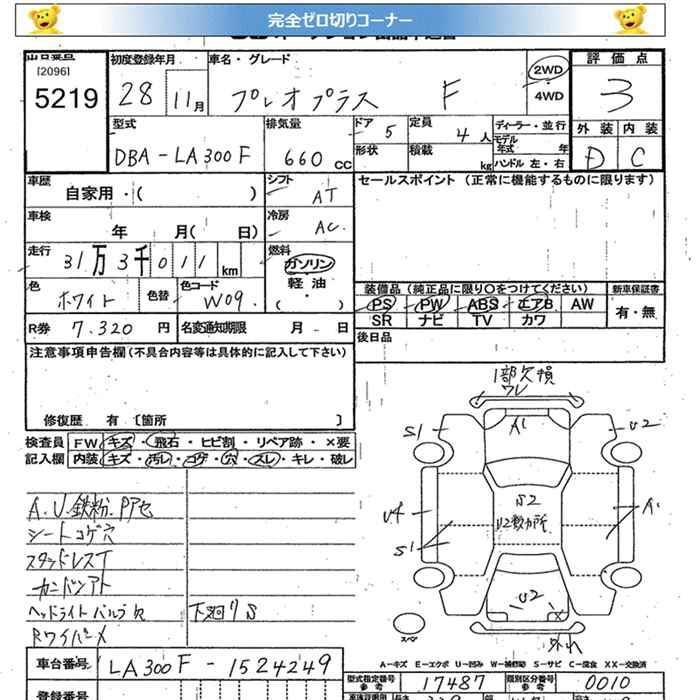 完全ゼロ切りコーナー
出品番号 初度登録年月 車名・グレード 評価点
[2096]
5219 28 11月 プレオプラス F 2WD 4WD 3
型式 排気量 ドア 5 定員 4人 ディーラー・並行 外装 内装
モデル年式 年
DBA-LA300F 660 CC 形状 積載 kg ハンドル 左・右 D C
車歴 シフト セールスポイント (正常に機能するものに限ります)
自家用・( ) AT
車検 冷房
年 月( 日) AC
走行 燃料
31万3千011km ガソリン
軽油
( ・ )
色 色替 色コード 装備品(純正品に限り○をつけてください) 新車保証書
ホワイト W09 PS PW ABS エアB AW 有・無
SR ナビ TV カワ
R券 7.320円 名変通知期限 月 日 後日品
注意事項申告欄(不具合内容等は具体的に記入して下さい)
修復歴 有 〔箇所 〕
検査員 FW キズ・飛石・ヒビ割・リペア跡・×要
記入欄 内装 キズ・汚レ・コゲ・穴・スレ・キレ・破レ
1部欠損
ワレ
S1 A1 U2
A.U.鉄粉.Pアセ
シートコゲ穴
スタッドレスT
カンバンアト
ヘッドライトバルブ欠 下廻りS
Rワイパー✕
U4 S2 A1
U2数カ所
S1
U2
スペア 外れ
A-キズ E-エクボ U-凹み W-補修跡 S-サビ C-腐食 XX-交換済
車台番号 LA300F-1524249 型式指定番号 参考 17487 類別区分番号 参考 0010
登録番号